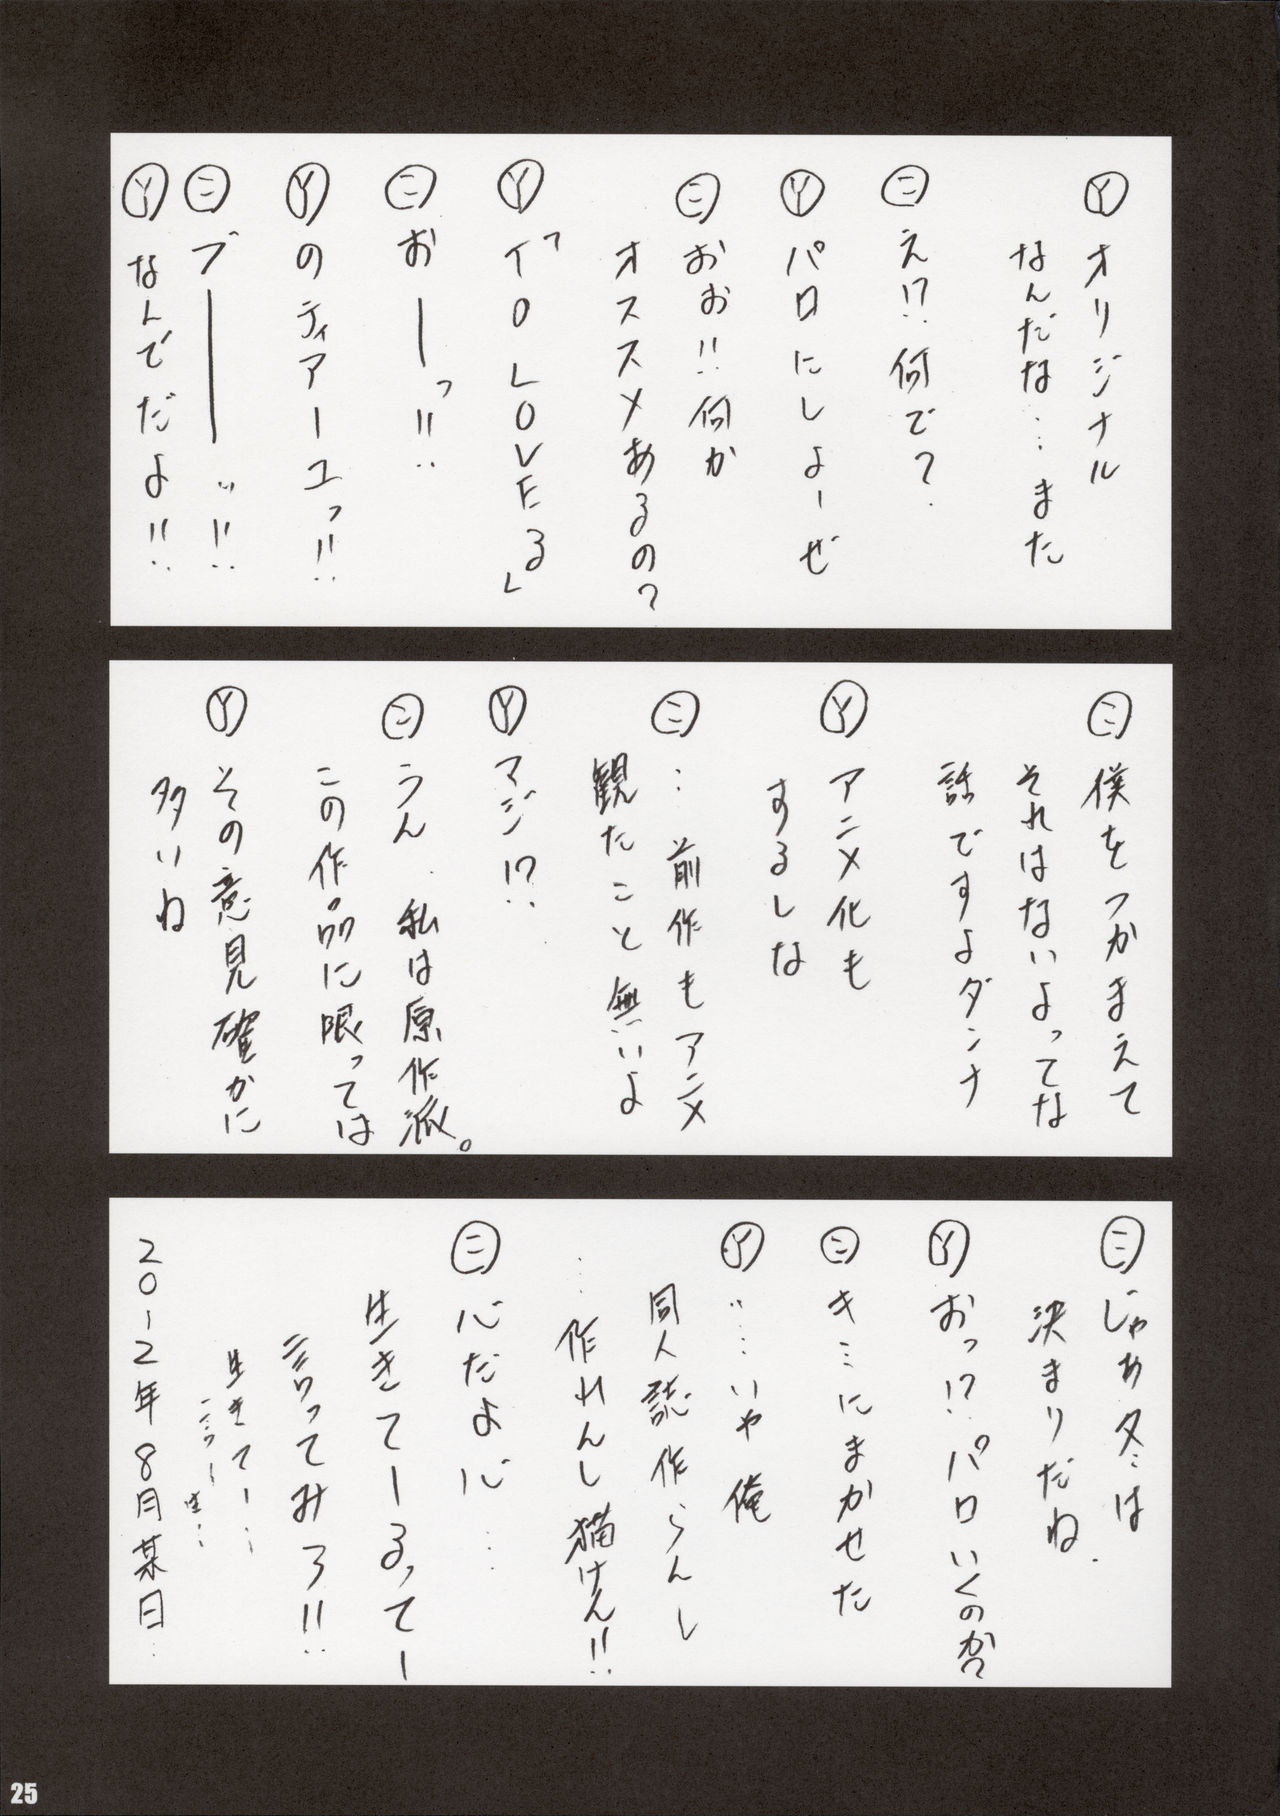 Ⓨオリジナル
なんだな…また
㊁え!?何で?
Ⓨパロにしよーぜ
㊁おぉ!!何か
オススメあるの?
Ⓨ「TO LOVEる」
㊁おーーっ!!
Ⓨのティアーユっ!!
㊁ブーーーッ!!
Ⓨなんでだよ!!
㊁僕をつかまえて
それはないよってな
話ですよダンナ
Ⓨアニメ化も
するしな
㊁…前作もアニメ
観たこと無いよ
Ⓨマジ!?
㊁うん、私は原作派。
この作品に限っては
Ⓨその意見確かに
多いね
㊁じゃあ冬ミは
決まりだね
Ⓨおっ!?パロいくのか?
㊁キミにまかせた
Ⓨ……いや俺
同人誌作らんし
…作れんし猫けん!!
㊁心だよ心…
生きてーるってー
言ってみろ!!
生きてー…
2012年8月某日
25